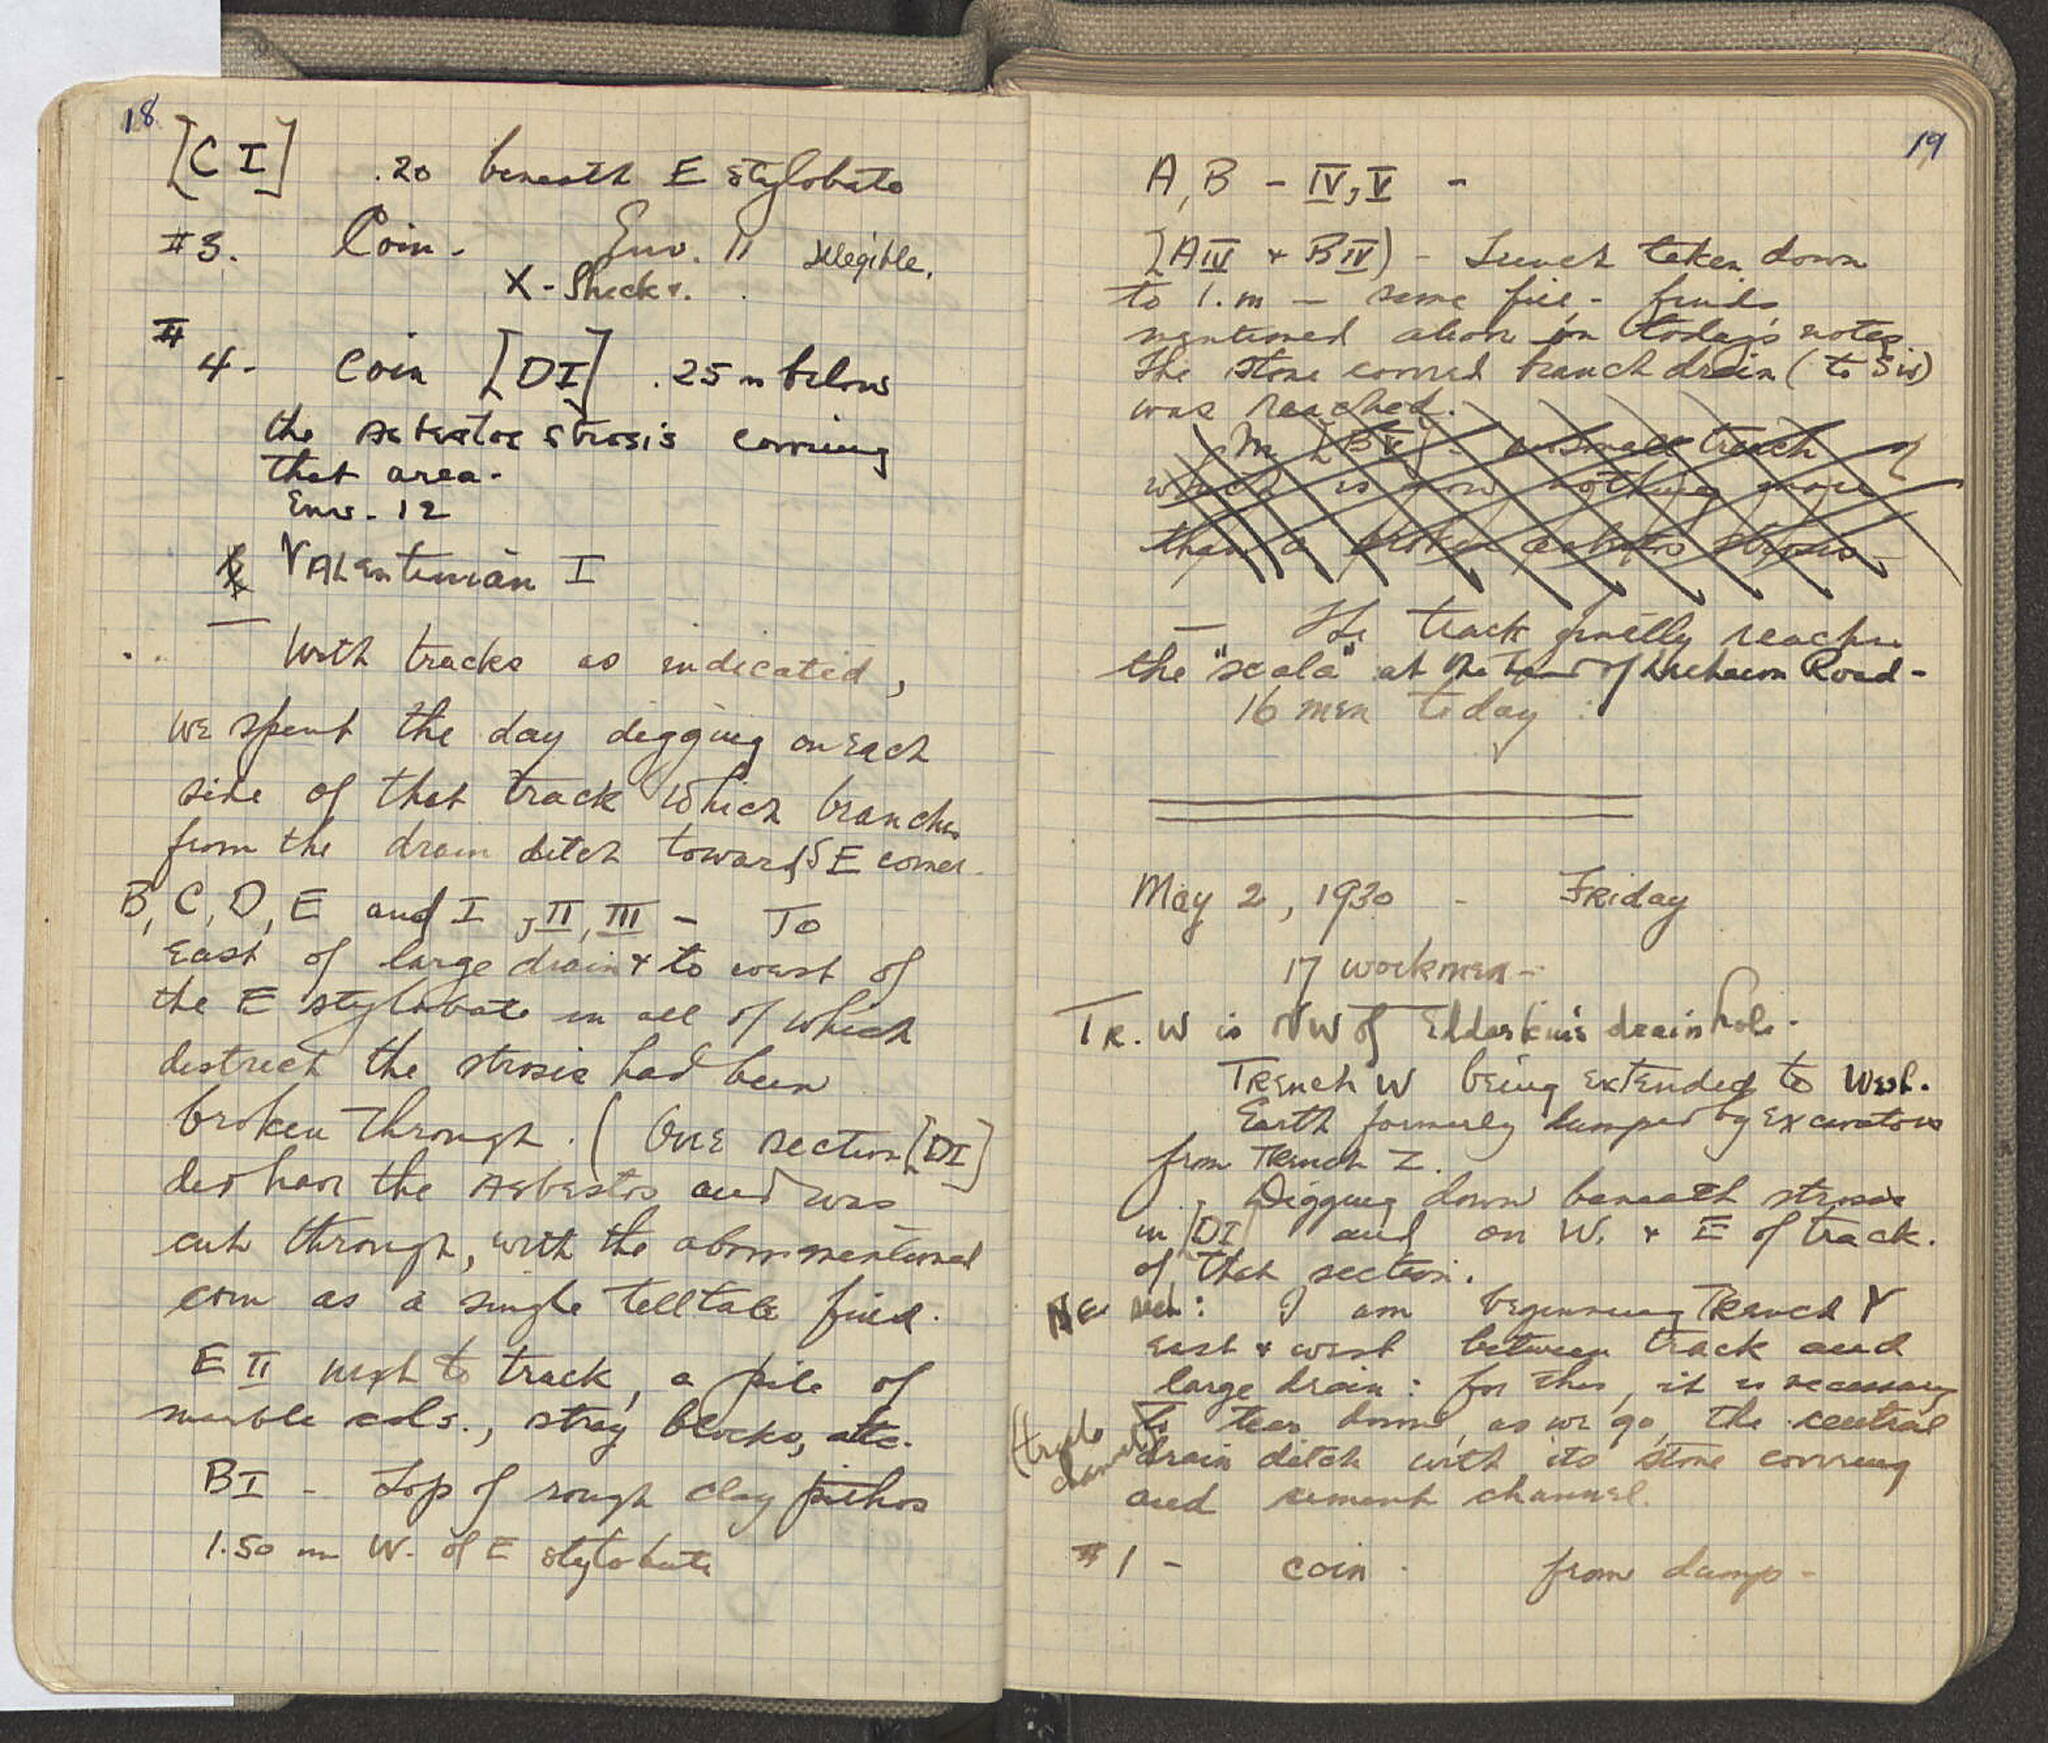 18
[C I] .20 beneath E stylobate
#3. Coin - Env. 11 Illegible.
X - Shear.
#4 - Coin [DI] .25 m below
the asbestos strosis covering
that area -
Env. 12
Valentinian I
With tracks as indicated,
we spent the day digging on each
side of that track which branches
from the drain ditch toward SE corner.
B, C, D, E and I, II, III - To
East of large drain + to west of
the E stylobate in all of which
district the strosis had been
broken through. (One section [DI]
did have the asbestos and was
cut through, with the above mentioned
coin as a single telltale find.
E II next to track, a pile of
marble cols., stray blocks, etc.
BI - Top of rough clay pithos
1.50 m W. of E stylobate
19
A, B - IV, V -
[AIV + BIV] - Trench taken down
to 1. m - same fill - finds
mentioned above in today's notes.
The stone covered branch drain (to SW)
was reached.
In [BV] - a small trench of
which is now nothing more
than a broken asbestos strosis -
- The track finally reaches
the "scala" at the head of Lechaeon Road -
16 men today :
May 2, 1930 - Friday
17 workmen -
Tr. W is NW of drain hole.
Trench W being extended to West.
Earth formerly dumped by excavators
from Trench Z.
Digging down beneath strosis
in [DI] and on W. + E of track.
of that section.
NE sect: I am beginning Trench Y
east + west between track and
large drain : for this, it is necessary
to tear down, as we go, the central
drain ditch with its stone covering
and cement channel.
#1 - coin - from dump -